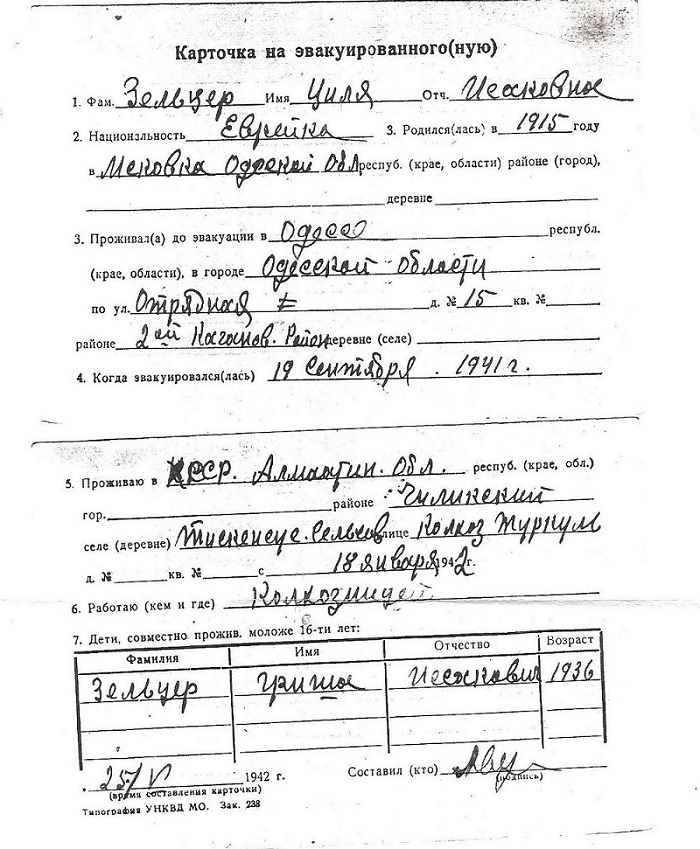 Карточка на эвакуированного(ную)
1. Фам. Зельцер Имя Циля Отч. Исаковна
2. Национальность Еврейка 3. Родился(лась) в 1915 году
в Одеской Обл респуб. (крае, области) районе (город),
деревне
3. Проживал(а) до эвакуации в Одесса республ.
(крае, области), в городе Одесской области
по ул. Отрядная д. № 15 кв. №
районе 2ой Каганов. Район деревне (селе)
4. Когда эвакуировался(лась) 19 Сентября. 1941 г.
5. Проживаю в КССР. Алмаатин. Обл. респуб. (крае, обл.)
гор. районе Чиликский
селе (деревне) улице Колхоз
д. № кв. № с 18 января 1942 г.
6. Работаю (кем и где)
7. Дети, совместно прожив. моложе 16-ти лет:
Фамилия Имя Отчество Возраст
Зельцер Гриша Исаакович 1936
25/V 1942 г. Составил (кто)
(время составления карточки) (подпись)
Типография УНКВД МО. Зак. 238